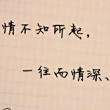 情不知所起，
一往而情深、